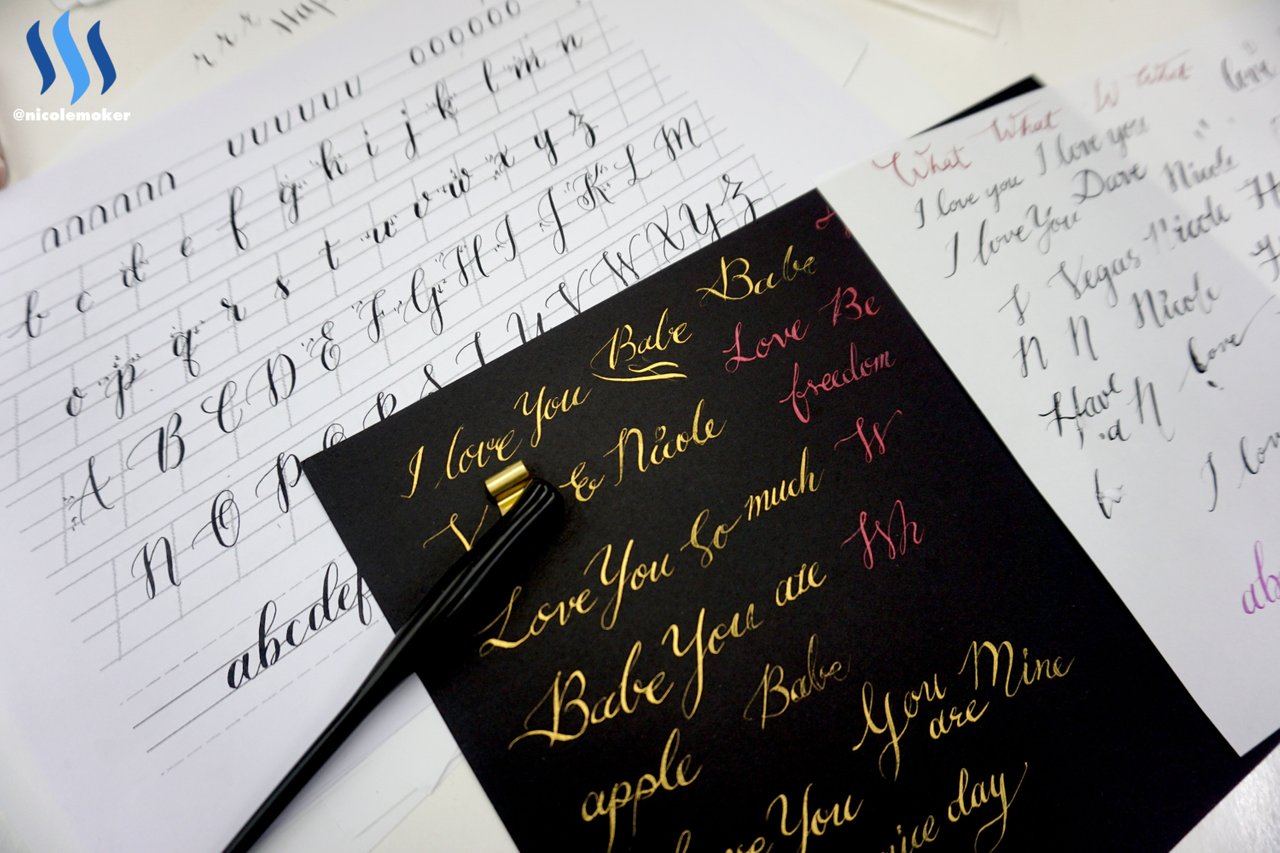 @nicolemoker
r r r
b c d e f g h i j k l m n
o p q r s t u v w x y z
A B C D E F G H I J K L M
N O P Q R S T U V W X Y Z
abcdef
I love You Babe Babe
& Nicole
Love Be
freedom
Love You So much W
Babe You are Wh
apple Babe You Mine
are
You nice day
What What W What
I love you I love you
I love You Dave Nicole
Vegas Nicole
N N Nicole
Have N love
I lov